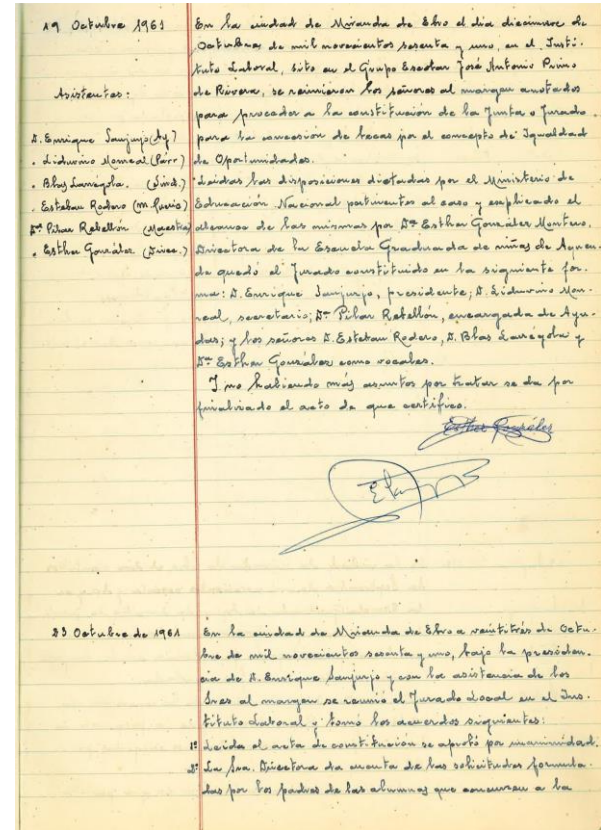 19 Octubre 1961
Asistentes:
D. Enrique Sanjurjo (Ay.)
" Liduvino Monreal (Párr.)
" Blas Larrégola. (Sind.)
" Esteban Rodero (M. Furio)
Dª Pilar Rebellón (Maestra)
" Esther González (Direc.)
En la ciudad de Miranda de Ebro el día diecinueve de
Octubre, de mil novecientos sesenta y uno, en el Insti-
tuto Laboral, sito en el Grupo Escolar José Antonio Primo
de Rivera, se reunieron los señores al margen anotados
para proceder a la constitución de la Junta o Jurado
para la concesión de becas por el concepto de Igualdad
de Oportunidades.
Leídas las disposiciones dictadas por el Ministerio de
Educación Nacional pertinentes al caso y explicado el
alcance de las mismas por Dª Esther González Montero,
Directora de la Escuela Graduada de niñas de Aquen-
de quedó el Jurado constituido en la siguiente for-
ma: D. Enrique Sanjurjo, presidente; D. Liduvino Mon-
real, secretario; Dª Pilar Rebellón, encargada de Ayu-
das; y los señores D. Esteban Rodero, D. Blas Larrégola y
Dª Esther González como vocales.
Y no habiendo más asuntos por tratar se da por
finalizado el acto de que certifico.
Esther González
23 Octubre de 1961
En la ciudad de Miranda de Ebro a veintitrés de Octu-
bre de mil novecientos sesenta y uno, bajo la presiden-
cia de D. Enrique Sanjurjo y con la asistencia de los
Sres al margen se reunió el Jurado Local en el Ins-
tituto Laboral y tomó los acuerdos siguientes:
1º Leída el acta de constitución se aprobó por unanimidad.
2º La Sra. Directora da cuenta de las solicitudes formula-
das por los padres de las alumnas que concurren a la